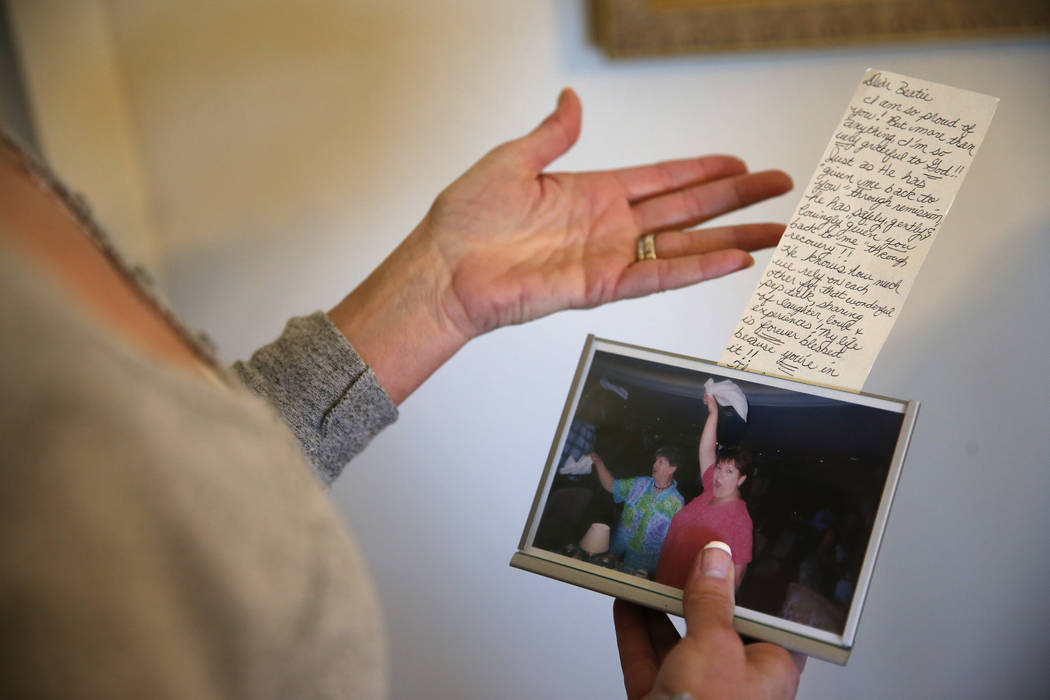 Dear Beatie
I am so proud of
you! But more than
anything I'm so
very grateful to God!!
Just as He has
"given me back to
you" through remission,
He has safely, gently &
lovingly "given you
back to me" through
recovery!!
He knows how much
we rely on each
other for that wonderful
pep talk, sharing
of laughter, love &
experiences! My life
is forever blessed
because you're in
it!!